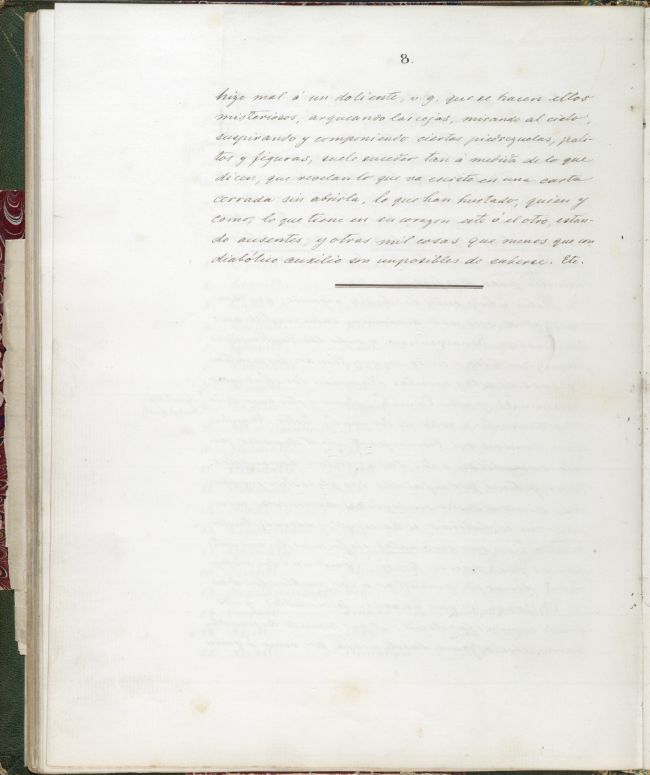 8.
hizo mal á un doliente, v. g. que se hacen ellos
misteriosos, arqueando las cejas, mirando al cielo,
suspirando y componiendo ciertas piedrezuelas, pali-
tos y figuras, suele suceder tan á medida de lo que
dicen, que revelan lo que va escrito en una carta
cerrada sin abrirla, lo que han hurtado, quien y
como, lo que tiene en su corazon este ó el otro, estan-
do ausentes, y otras mil cosas que menos que con
diabólico auxilio son imposibles de saberse. Etc.